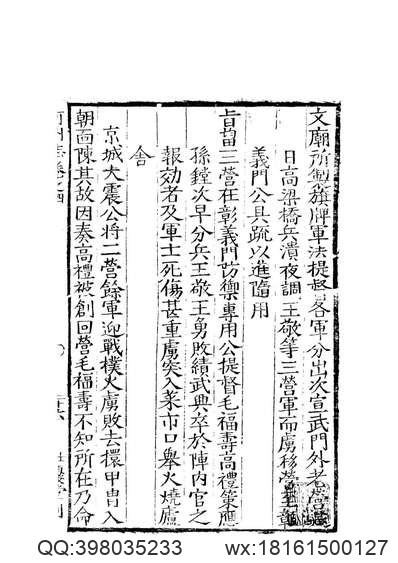 文廟所製旗牌軍法提督各軍分出次宣武門外老營
日高梁橋兵潰夜調王敬等三營軍而虜移營至彰
義門公具疏以進隨用
旨留三營在彰義門防禦專用公提督毛福壽高禮策應
孫鏜次早分兵王敬王勇敗績武興卒於陣內官之
報効者及軍士死傷甚重虜突入菜市口舉火燒廬
舍
京城大震公將二營餘軍迎戰撲火虜敗去擐甲冑入
朝面陳其故因奏高禮被創回營毛福壽不知所在乃命
QQ:398035233 wx:18161500127